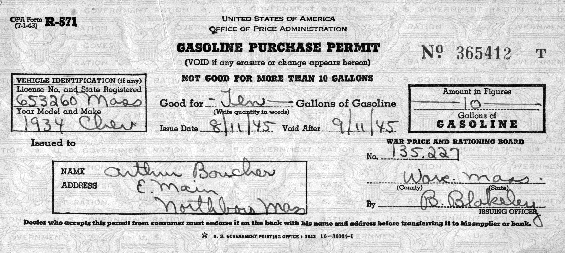 OPA Form R-571
(7-1-43)
UNITED STATES OF AMERICA
OFFICE OF PRICE ADMINISTRATION
GASOLINE PURCHASE PERMIT
(VOID if any erasure or change appears hereon)
No 365412 T
NOT GOOD FOR MORE THAN 10 GALLONS
VEHICLE IDENTIFICATION (if any)
License No. and State Registered
653260 Mass
Year Model and Make
1934 Chev
Good for Ten Gallons of Gasoline
(Write quantity in words)
Issue Date 8/11/45 Void After 9/11/45
Amount in Figures
10
Gallons of
GASOLINE
Issued to
WAR PRICE AND RATIONING BOARD
No. 135.227
NAME Arthur Boucher
ADDRESS E. Main
Northboro Mass
Worc. Mass.
(County) (State)
By B. Blakeley
ISSUING OFFICER
Dealer who accepts this permit from consumer must endorse it on the back with his name and address before transferring it to his supplier or bank.
U. S. GOVERNMENT PRINTING OFFICE